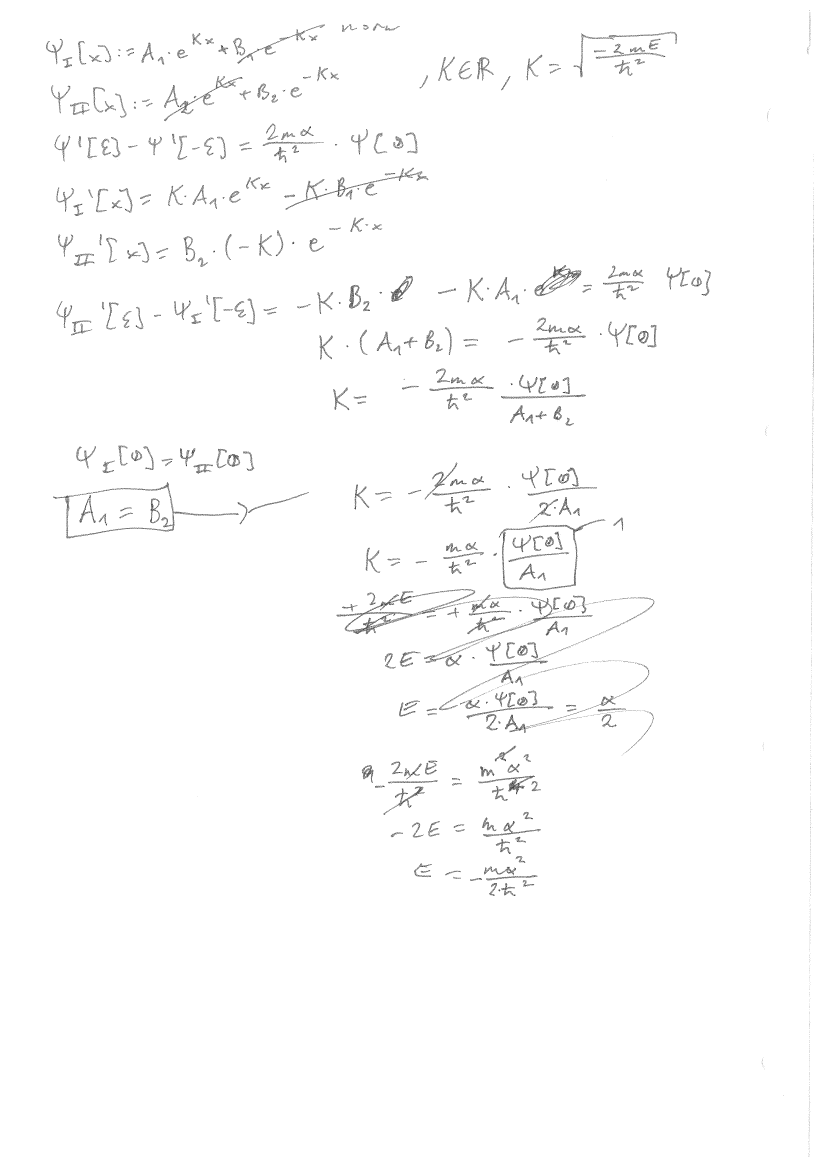 Ψ_I[x] := A₁·e^{Kx} + B₁·e^{-Kx} norm
Ψ_II[x] := A₂·e^{Kx} + B₂·e^{-Kx} , K∈ℝ , K = √(-2mE/ħ²)
Ψ'[ε] - Ψ'[-ε] = 2mα/ħ² · Ψ[0]
Ψ_I'[x] = K·A₁·e^{Kx} - K·B₁·e^{-Kx}
Ψ_II'[x] = B₂·(-K)·e^{-K·x}
Ψ_II'[ε] - Ψ_I'[-ε] = -K·B₂· - K·A₁· = 2mα/ħ² Ψ[0]
K·(A₁+B₂) = - 2mα/ħ² · Ψ[0]
K = - 2mα/ħ² · Ψ[0]/(A₁+B₂)
Ψ_I[0] = Ψ_II[0]
A₁ = B₂ → K = - 2mα/ħ² · Ψ[0]/(2·A₁)
K = - mα/ħ² · Ψ[0]/A₁ 1
+ 2mE/ħ² = + mα/ħ² · Ψ[0]/A₁
2E = α · Ψ[0]/A₁
E = α·Ψ[0]/(2·A₁) = α/2
- 2mE/ħ² = m²α²/ħ⁴ 2
-2E = mα²/ħ²
E = - mα²/(2·ħ²)